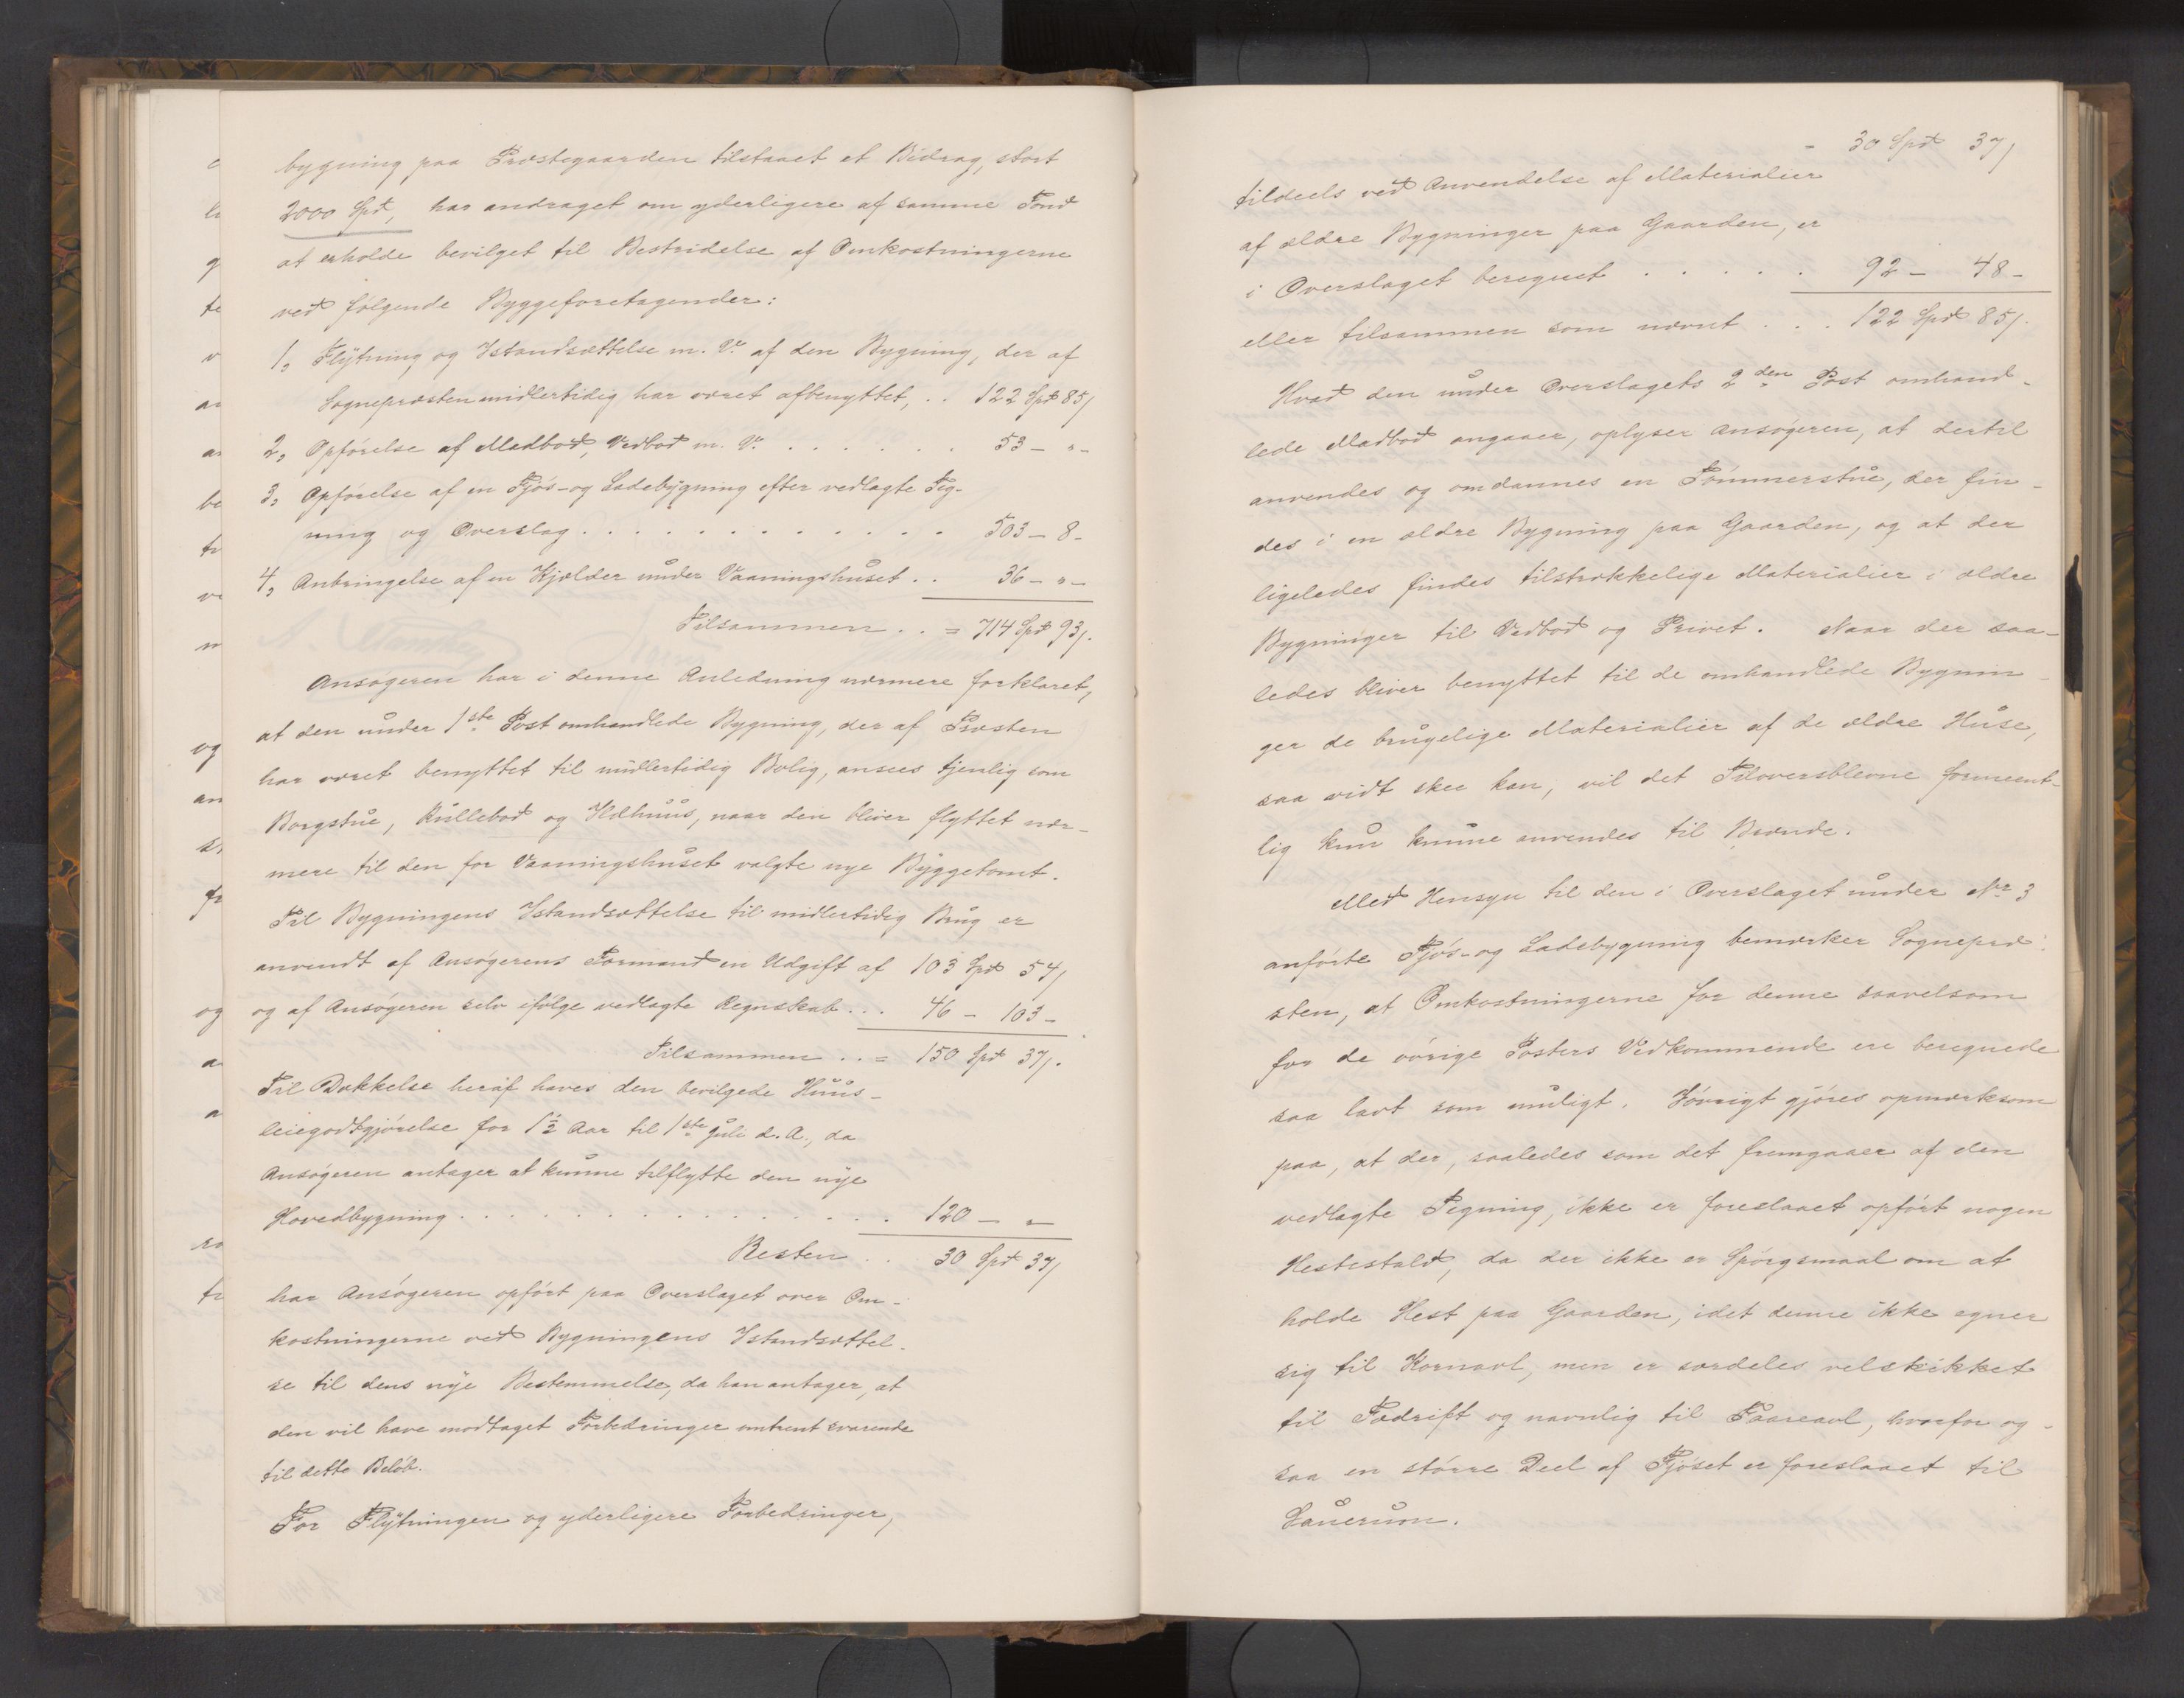 bygning paa Præstegaarden tilstaaet et Bidrag, stort
2000 Spd, har andraget om yderligere af samme Fond
at erholde bevilget til Bestridelse af Omkostningerne
ved følgende Byggeforetagender:
1, Flytning og Istandsættelse m. V. af den Bygning, der af
Sognepræsten midlertidig har været afbenyttet, .. 122 Spd 85/
2, Opførelse af Madbod, Vedbod m. V. . . . . . . 53 – " –
3, Opførelse af en Fjøs- og Ladebygning efter vedlagte Teg-
ning og Overslag . . . . . . . . . . . . . 503 – 8 –
4, Anbringelse af en Kjelder under Vaaningshuset . . 36 – " –
Tilsammen . . = 714 Spd 93/.
Ansøgeren har i denne Anledning nærmere forklaret,
at den under 1ste Post omhandlede Bygning, der af Præsten
har været benyttet til midlertidig Bolig, ansees tjenlig som
Borgstue, Rullebod og Ildhuus, naar den bliver flyttet nær-
mere til den for Vaaningshuset valgte nye Byggetomt.
Til Bygningens Istandsættelse til midlertidig Brug er
anvendt af Ansøgerens Formand en Udgift af 103 Spd 54/
og af Ansøgeren selv ifølge vedlagte Regnskab . . . 46 – 103 –
Tilsammen . . = 150 Spd 37/.
Til Dækkelse heraf haves den bevilgede Huus-
leiegodtgjørelse for 1½ Aar til 1ste Juli d. A., da
Ansøgeren antager at kunne tilflytte den nye
Hovedbygning . . . . . . . . . . . . . . . 120 – " –
Resten . . 30 Spd 37/
har Ansøgeren opført paa Overslaget over Om-
kostningerne ved Bygningens Istandsættel-
se til dens nye Bestemmelse, da han antager, at
den vil have modtaget Forbedringer omtrent svarende
til dette Beløb.
For Flytningen og yderligere Forbedringer,
– 30 Spd 37/
tildeels ved Anvendelse af Materialier
af ældre Bygninger paa Gaarden, er
i Overslaget beregnet . . . . . 92 – 48 –
eller tilsammen som nævnt . . . 122 Spd 85/.
Hvad den under Overslagets 2den Post omhand-
lede Madbod angaaer, oplyser Ansøgeren, at dertil
anvendes og omdannes en Tømmerstue, der fin-
des i en ældre Bygning paa Gaarden, og at der
ligeledes findes tilstrækkelige Materialier i ældre
Bygninger til Vedbod og Privet. Naar der saa-
ledes bliver benyttet til de omhandlede Bygnin-
ger de brugelige Materialier af de ældre Huse,
saa vidt skee kan, vil det Tiloversblevne formeent-
lig kun kunne anvendes til Brænde.
Med Hensyn til den i Overslaget under No 3
anførte Fjøs- og Ladebygning bemærker Sognepræ-
sten, at Omkostningerne for denne saavelsom
for de øvrige Posters Vedkommende ere beregnede
saa lavt som muligt. Iøvrigt gjøres opmærksom
paa, at der, saaledes som det fremgaaer af den
vedlagte Tegning, ikke er foreslaaet opført nogen
Hestestald, da der ikke er Spørgsmaal om at
holde Hest paa Gaarden, idet denne ikke egner
sig til Kornavl, men er særdeles velskikket
til Fædrift og navnlig til Faareavl, hvorfor og-
saa en større Deel af Fjøset er foreslaaet til
Sauerum.